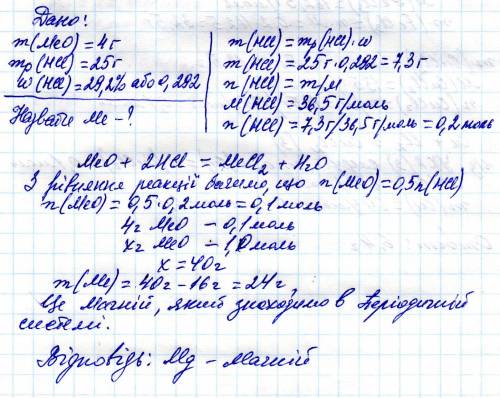 Дано:
m(MeO) = 4г
mр(HCl) = 25г
w(HCl) = 29,2% або 0,292
Назвати Me - ?
m(HCl) = mр(HCl)·w
m(HCl) = 25г·0,292 = 7,3г
n(HCl) = m/M
M(HCl) = 36,5г/моль
n(HCl) = 7,3г/36,5г/моль = 0,2моль
MeO + 2HCl = MeCl₂ + H₂O
З рівняння реакції бачимо, що n(MeO) = 0,5n(HCl)
n(MeO) = 0,5·0,2моль = 0,1моль
4г MeO – 0,1моль
xг MeO – 1,0моль
x = 40г
m(Me) = 40г - 16г = 24г
Це Магній, який знаходимо в Періодичній
системі.
Відповідь: Mg – Магній